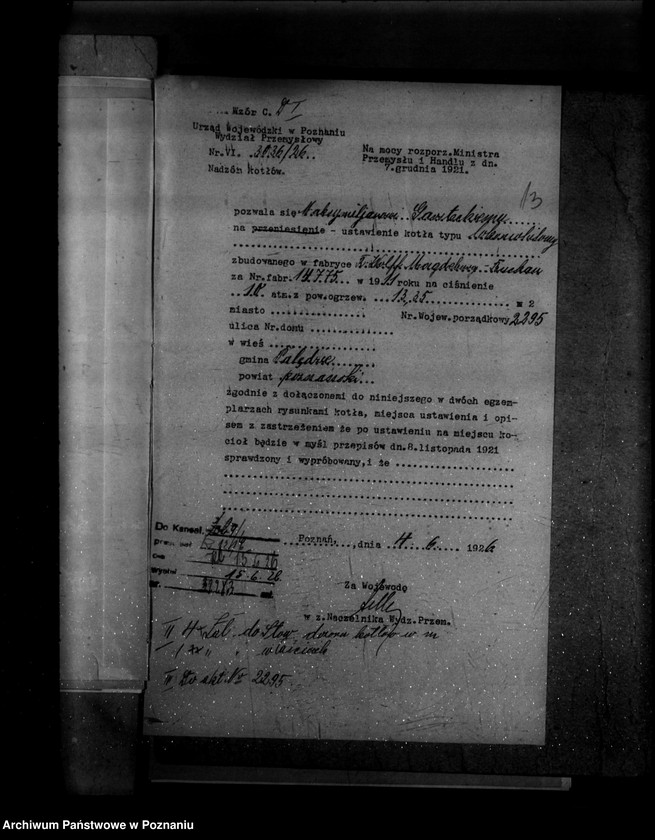 Wzór C.
Urząd Wojewódzki w Poznaniu
Wydział Przemysłowy
Nr.VI. 3036/26..
Nadzór kotłów.
Na mocy rozporz.Ministra
Przemysłu i Handlu z dn.
7.grudnia 1921.
13
pozwala się
na przeniesienie - ustawienie kotła typu
zbudowanego w fabryce R. Wolff Magdeburg - Buckau
za Nr.fabr. 14775.. w 1911 roku na ciśnienie
..10 atm.z pow.ogrzew. ...13,25..... m 2
miasto ................ Nr.Wojew.porządkowy 2295
ulica Nr.domu ..............
w wieś ..................
gmina Palędzie.......
powiat poznański...
zgodnie z dołączonemi do niniejszego w dwóch egzem-
plarzach rysunkami kotła, miejsca ustawienia i opi-
sem z zastrzeżeniem że po ustawieniu na miejscu ko-
cioł będzie w myśl przepisów dn.8.listopada 1921
sprawdzony i wypróbowany,i że ....................
Do Kancel.
15.6.26
15.6.26
Poznań,...,dnia ..4...6... 1926
Za Wojewodę
w z.Naczelnika Wydz.Przem.
II 4 x Zał. do Stow. dozoru kotłów w m
II Do akt. No 2295
Archiwum Państwowe w Poznaniu